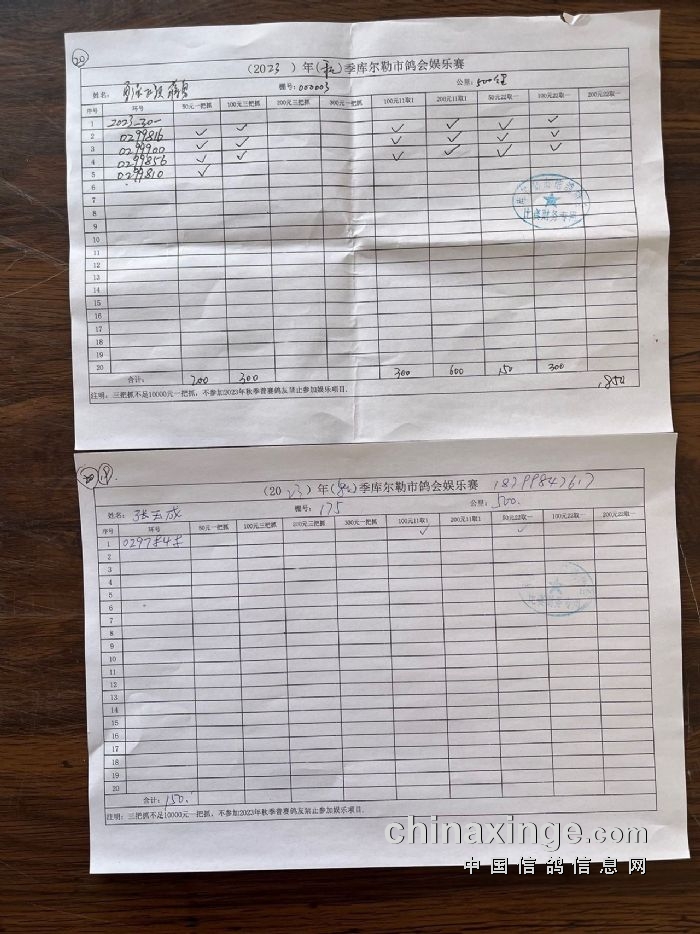 20
(2023)年(秋)季库尔勒市鸽会娱乐赛
姓名: 棚号: 000003 公里: 500公里
序号 环号 50元一把抓 100元三把抓 200元三把抓 300元一把抓 100元11取1 200元11取1 50元22取一 100元22取一 200元22取一
1 2023-30-
2 0299816 ✓ ✓ ✓ ✓ ✓ ✓
3 0299900 ✓ ✓ ✓ ✓ ✓ ✓
4 0299856 ✓ ✓ ✓ ✓ ✓ ✓
5 0299810 ✓
6
7
8
9
10
11
12
13
14
15
16
17
18
19
20
合计: 200 300 300 600 150 300
1850
注明: 三把抓不足10000元一把抓, 不参加2023年秋季普赛鸽友禁止参加娱乐项目.
20 19
(2023)年(秋)季库尔勒市鸽会娱乐赛 18799842617
姓名: 张玉成 棚号: 175 公里: 500.
序号 环号 50元一把抓 100元三把抓 200元三把抓 300元一把抓 100元11取1 200元11取1 50元22取一 100元22取一 200元22取一
1 ✓ ✓
2
3
4
5
6
7
8
9
10
11
12
13
14
15
16
17
18
19
20
合计: 150.
注明: 三把抓不足10000元一把抓, 不参加2023年秋季普赛鸽友禁止参加娱乐项目.
chinaxinge.com
中国信鸽信息网